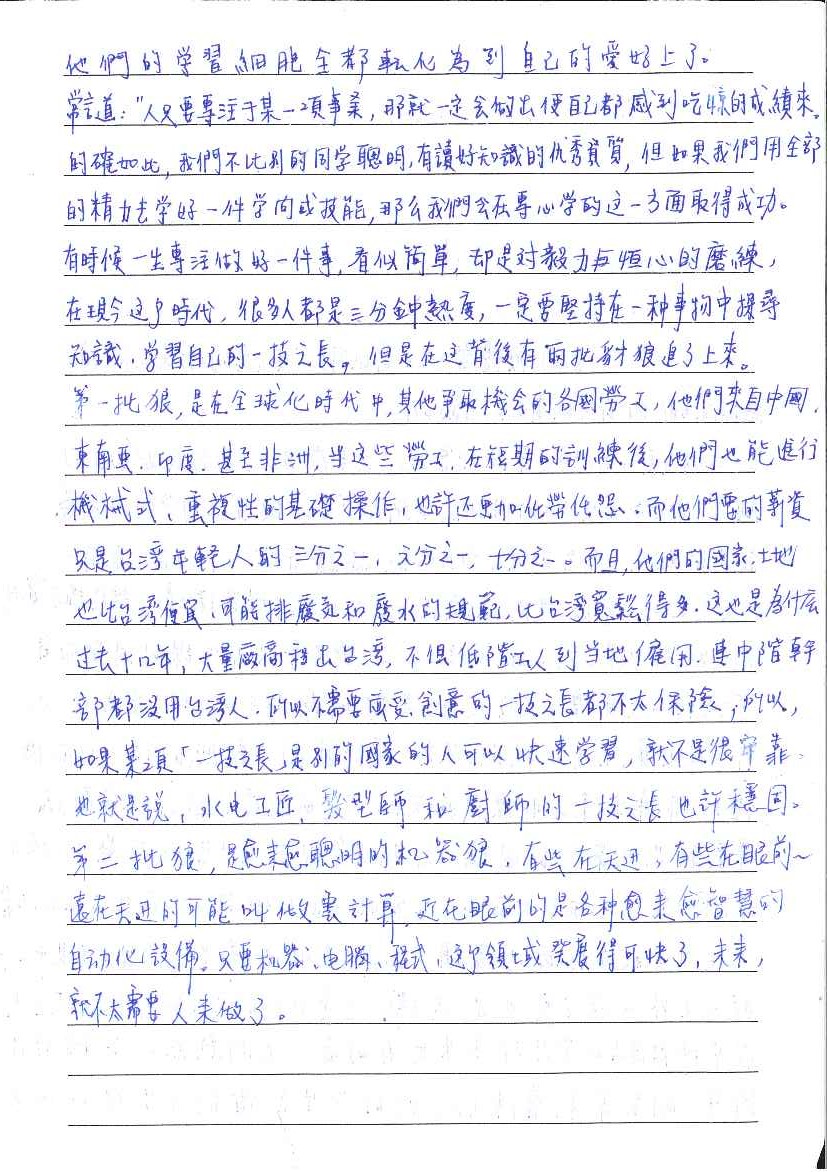 他們的学習細胞全都転化為到自己的愛好上了。
常言道："人只要專注于某一項事業，那就一定会做出使自己都感到吃惊的成績來。
的確如此，我們不比別的同学聰明，有讀好知識的优秀資質，但如果我們用全部
的精力去学好一件学问或技能，那么我們会在專心学的这一方面取得成功。
有時候一生專注做好一件事，看似简單，却是对毅力与恒心的磨練，
在現今这个時代，很多人都是三分鐘熱度，一定要堅持在一种事物中探尋
知識、学習自己的一技之長。但是在这背後有兩批豺狼追了上來。
第一批狼，是在全球化時代中，其他爭取機会的各國勞工，他們來自中國，
東南亜．印度．甚至非洲，当这些勞工，在短期的訓練後，他們也能進行
機械式、重複性的基礎操作，也許还更加任勞任怨、而他們要的薪資
只是台湾年輕人的三分之一、六分之一，十分之一。而且，他們的國家，土地
也比台湾便宜、可能排廢気和廢水的規範，比台湾寬鬆得多．这也是為什么
过去十几年，大量廠商移出台湾，不但低階工人到当地僱用．連中階幹
部都没用台湾人．所以不需要感受、創意的一技之長都不太保險；所以，
如果某項「一技之長」是別的國家的人可以快速学習，就不是很牢靠．
也就是說，水电工匠，髮型師和廚師的一技之長也許穩固。
第二批狼，是愈来愈聰明的机器狼．有些在天边；有些在眼前～
遠在天边的可能叫做雲計算，近在眼前的是各种愈来愈智慧的
自动化設備。只要机器、电腦、程式，这个領土或發展得可快了，未来，
就不太需要人来做了。